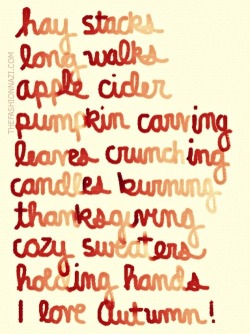 hay stacks
long walks
apple cider
pumpkin carving
leaves crunching
candles burning
thanksgiving
cozy sweaters
holding hands
I love Autumn!
THEFASHIONNAZI.COM